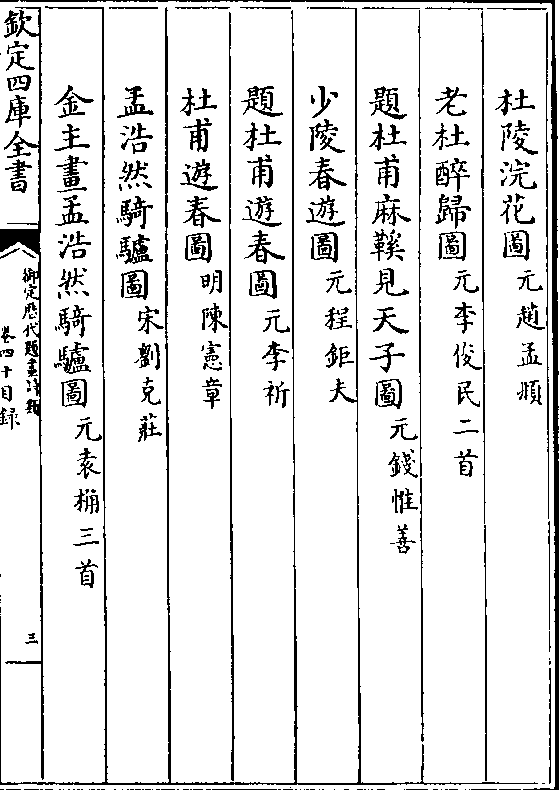 杜陵浣花圖元趙孟頫
老杜醉歸圖元李俊民二首
題杜甫麻鞵見天子圖元錢惟善
少陵春遊圖元程鉅夫
題杜甫遊春圖元李祈
杜甫遊春圖明陳憲章
孟浩然騎驢圖宋劉克莊
金主畫孟浩然騎驢圖元袁桷三首
欽定四庫全書
御定歷代題畫詩類
卷四十目録
三